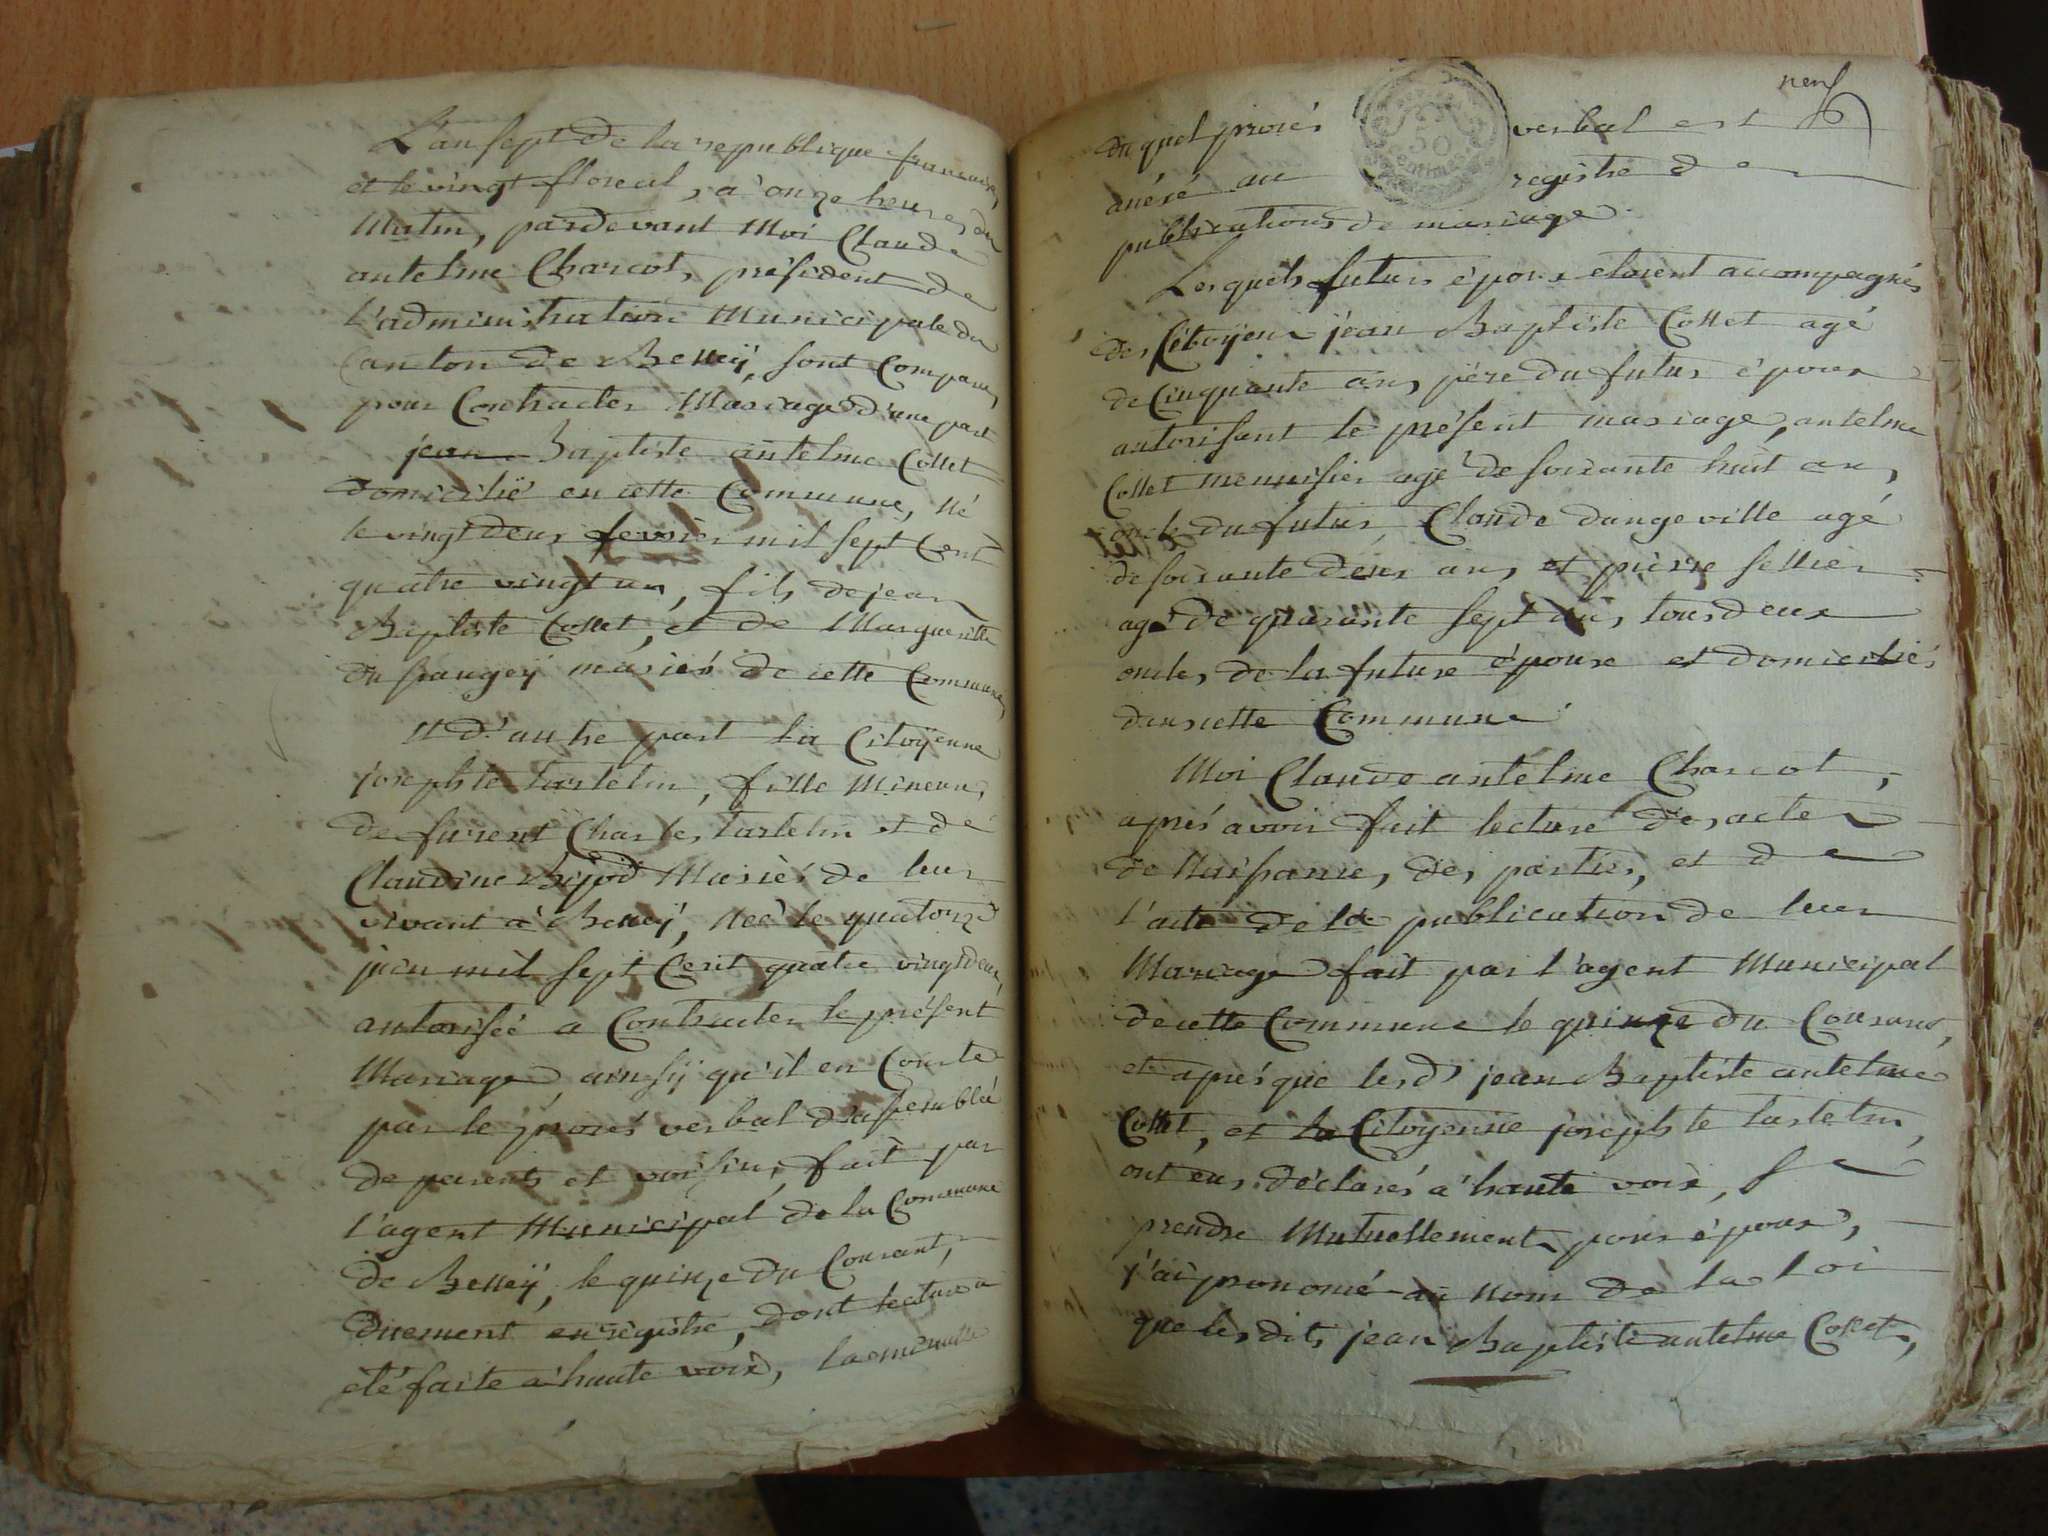 L'an sept de la republique francaise,
et le vingt floreal, a onze heures du
Matin, pardevant Moi Claude
antelme Charcot, président de
l'administration Municipale du
Canton de Belleÿ, sont Comparus
pour Contracter Mariage d'une part
jean Baptiste antelme Collet
domicilié en cette Commune, né
le vingt deux fevrier mil sept Cent
quatre vingt un, fils de jean
Baptiste Collet, et de Margueritte
du mariés de cette Commune,
Et d'autre part la Citoÿenne
josephte tartelin, fille Mineure,
de furent Charles tartelin et de
Claudine Bijod Mariés de leur
vivant a Belleÿ, Neé le quatorze
juin mil sept Cent quatre vingt deux,
autorisée a Contracter le présent
Mariage, ainsÿ qu'il en Conste
par le procés verbal d'assemblée
de parents et voisins, fait par
l'agent Municipal de la Commune
de Belleÿ, le quinze du Courant,
duement enregistré, dont lecture a
eté faite a haute voix, la minutte
neuf
du quel procés verbal est
au registre de
publications de mariage
Les quels futurs époux etoient accompagnés
des Citoÿens jean Baptiste Collet agé
de Cinquante ans, pére du futur époux
autorisant le présent mariage, antelme
Collet menuisier agé de soixante huit ans,
oncle du futur, Claude dangeville agé
de soixante deux ans, et pierre sellier
agé de quarante sept ans, tous deux
oncles de la future épouse et domiciliés
dans cette Commune
Moi Claude antelme Charcot,
aprés avoir fait lecture des actes
de Naissance, des parties, et de
l'acte de la publication de leur
Mariage fait par l'agent Municipal
de cette Commune le quinze du Courant,
et aprés que lesd.s jean Baptiste antelme
Collet, et la Citoyenne josephte tartelin,
ont eus déclarés a haute voix, se
prendre Mutuellement pour époux,
j'ai prononcé au nom de la loi
que les dits jean Baptiste antelme Collet,
50
centimes